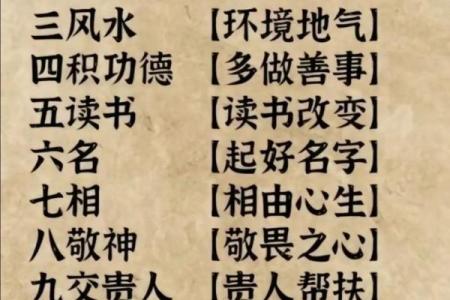 三风水 【环境地气】
四积功德 【多做善事】
五读书 【读书改变】
六名 【起好名字】
七相 【相由心生】
八敬神 【敬畏之心】
九交贵人 【贵人帮扶】